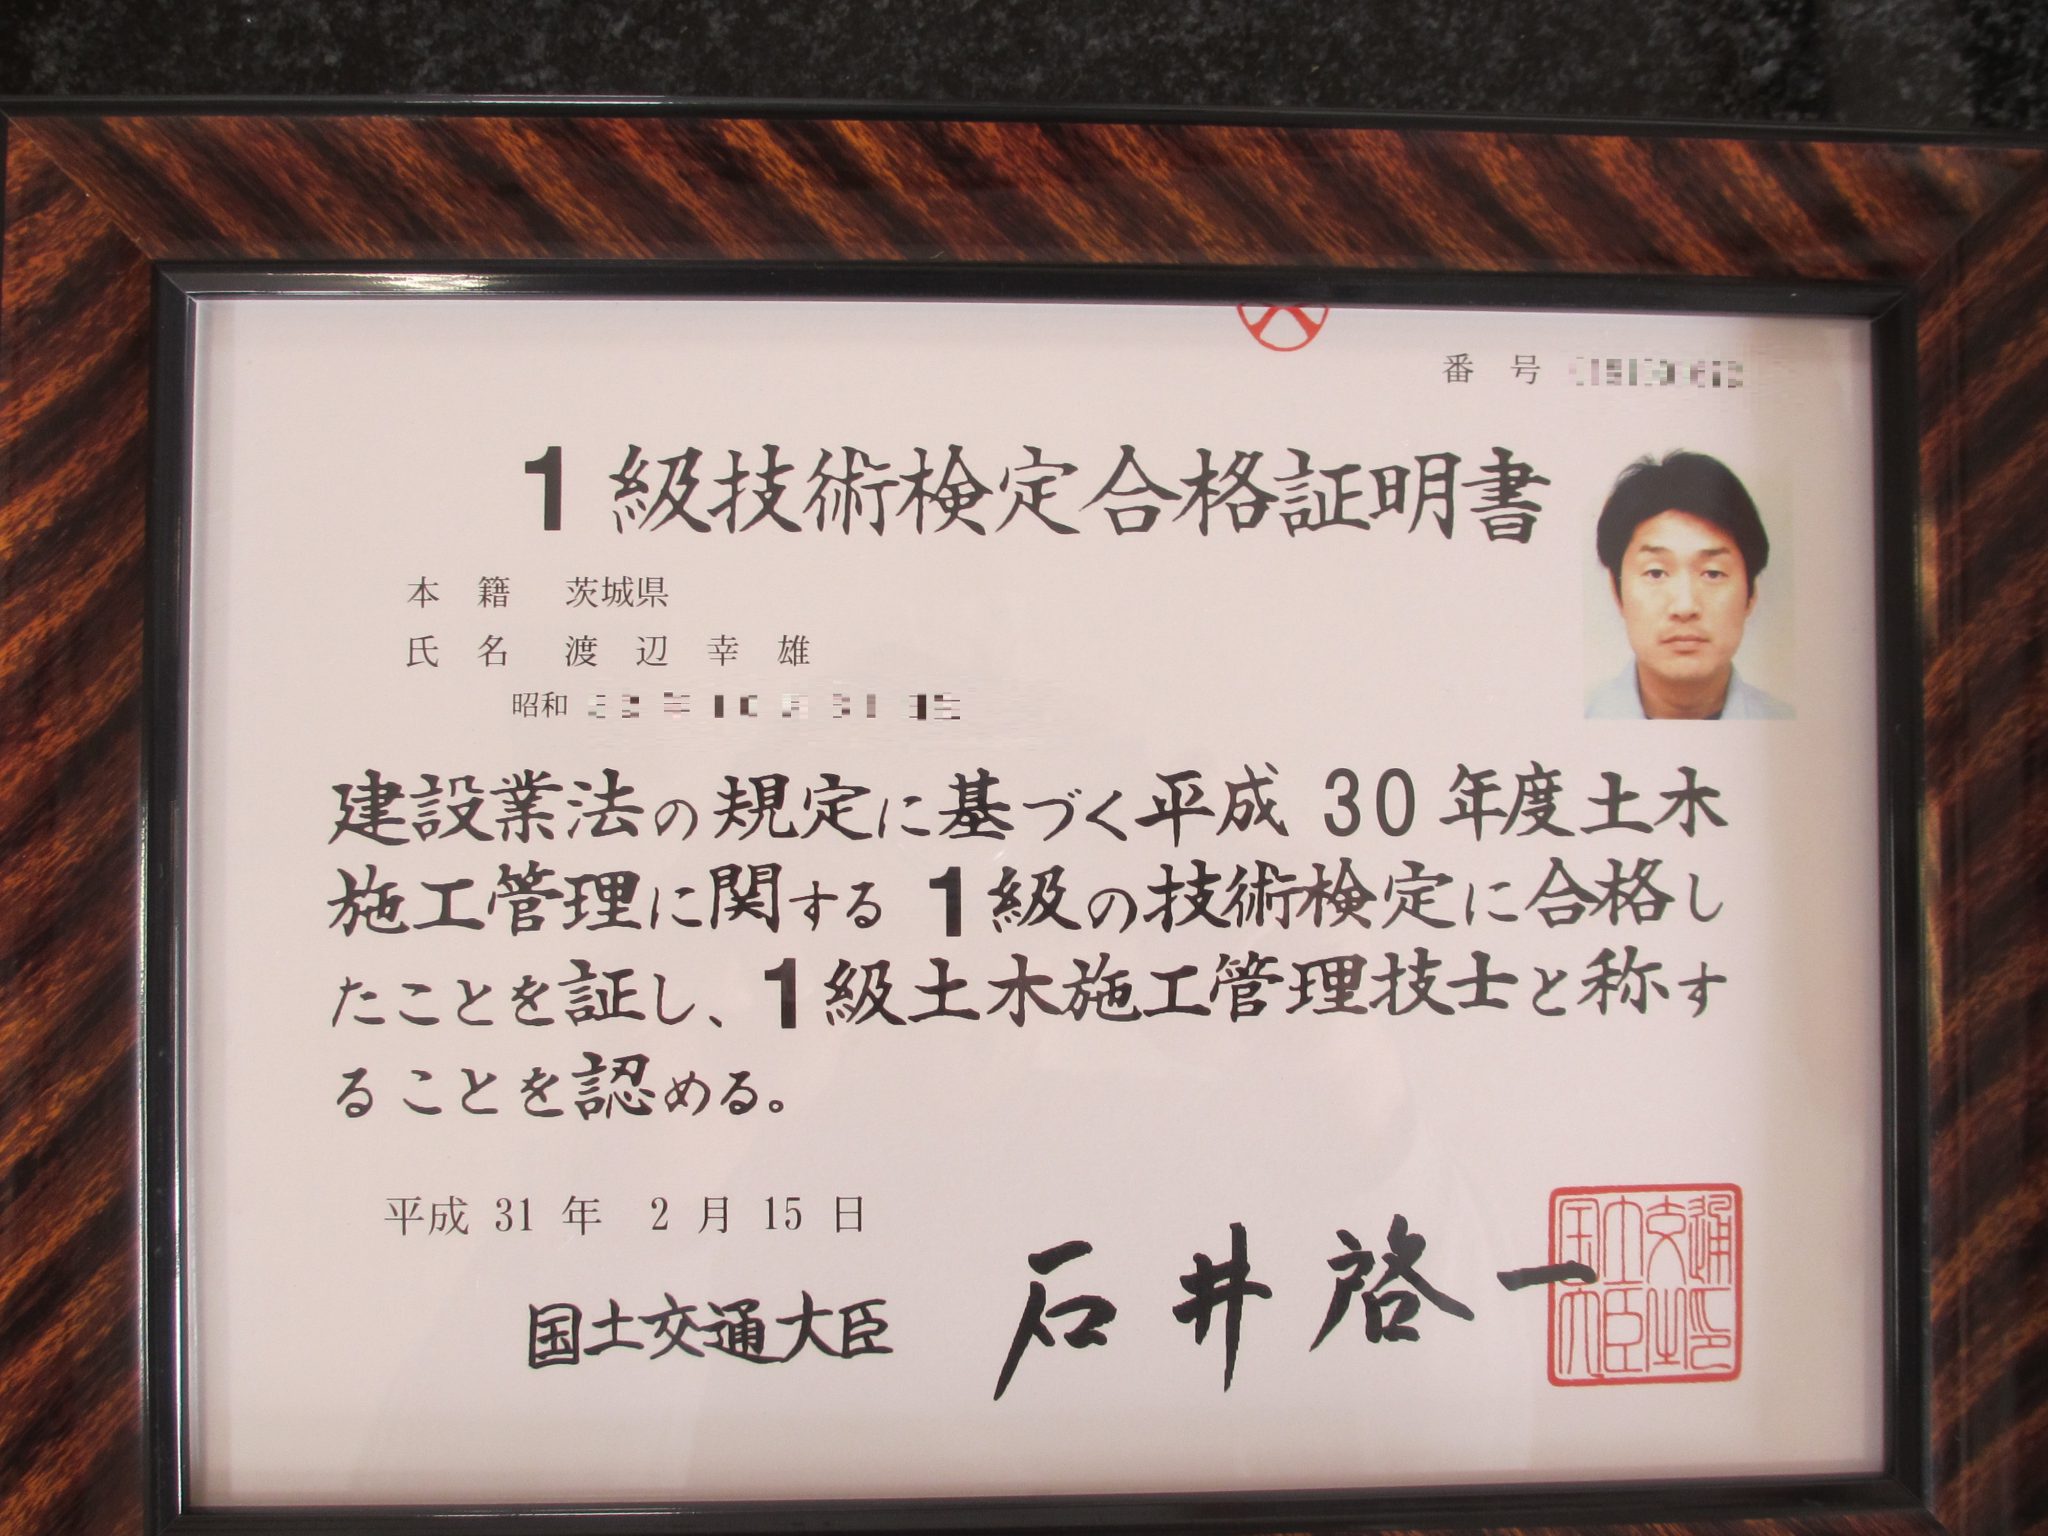 番号
1級技術検定合格証明書
本籍 茨城県
氏名 渡辺幸雄
昭和
建設業法の規定に基づく平成30年度土木
施工管理に関する1級の技術検定に合格し
たことを証し、1級土木施工管理技士と称す
ることを認める。
平成 31 年 2 月 15 日
国土交通大臣 石井啓一